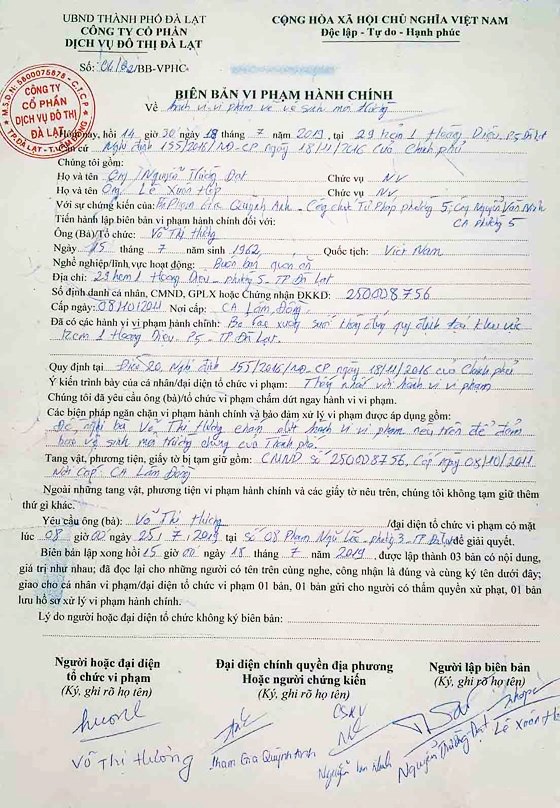 UBND THÀNH PHỐ ĐÀ LẠT
CÔNG TY CỔ PHẦN
DỊCH VỤ ĐÔ THỊ ĐÀ LẠT
CỘNG HÒA XÃ HỘI CHỦ NGHĨA VIỆT NAM
Độc lập - Tự do - Hạnh phúc
Số: /BB-VPHC
M.S.D.N:5800075878-C.T.C.P
CÔNG TY
CỔ PHẦN
DỊCH VỤ ĐÔ THỊ
ĐÀ LẠT
BIÊN BẢN VI PHẠM HÀNH CHÍNH
Về hành vi vi phạm về vệ sinh môi trường
Hôm nay, hồi 14 giờ 30 ngày 18 tháng 7 năm 2019, tại 29 hẻm 1 Hoàng Diệu, P5, Đà Lạt
Căn cứ Nghị định 155/2016/NĐ-CP ngày 18/11/2016 của Chính phủ
Chúng tôi gồm:
Họ và tên Ông Nguyễn Thường Đạt Chức vụ NV
Họ và tên Ông Lê Xuân Hợp Chức vụ NV
Với sự chứng kiến của: Phạm Gia Quỳnh Anh - Công chức Tư Pháp phường 5; Ông Nguyễn Văn
CA phường 5
Tiến hành lập biên bản vi phạm hành chính đối với:
Ông (Bà)/Tổ chức: Võ Thị Hường
Ngày 15 tháng 7 năm sinh 1962 Quốc tịch: Việt Nam
Nghề nghiệp/lĩnh vực hoạt động: Buôn bán quán ăn
Địa chỉ: 29 hẻm 1 Hoàng Diệu - phường 5 - TP Đà Lạt
Số định danh cá nhân, CMND, GPLX hoặc Chứng nhận ĐKKD: 250008756
Cấp ngày: 08/10/2011 Nơi cấp: CA Lâm Đồng
Đã có các hành vi vi phạm hành chính: Bỏ rác xuống suối không đúng quy định tại khu vực
hẻm 1 Hoàng Diệu P5 TP Đà Lạt.
Quy định tại Điều 20, Nghị định 155/2016/NĐ-CP ngày 18/11/2016 của Chính phủ
Ý kiến trình bày của cá nhân/đại diện tổ chức vi phạm: Thống nhất với hành vi vi phạm
Chúng tôi đã yêu cầu ông (bà)/tổ chức vi phạm chấm dứt ngay hành vi vi phạm.
Các biện pháp ngăn chặn vi phạm hành chính và bảo đảm xử lý vi phạm được áp dụng gồm:
Đề nghị bà Võ Thị Hường chấm dứt hành vi vi phạm nêu trên để đảm
bảo vệ sinh môi trường chung của Thành phố.
Tang vật, phương tiện, giấy tờ bị tạm giữ gồm: CMND số 250008756, Cấp ngày 08/10/2011
Nơi Cấp: CA Lâm Đồng
Ngoài những tang vật, phương tiện vi phạm hành chính và các giấy tờ nêu trên, chúng tôi không tạm giữ thêm
thứ gì khác.
Yêu cầu ông (bà): Võ Thị Hường /đại diện tổ chức vi phạm có mặt
lúc 08 giờ 00 ngày 25/7/2019 tại số 08 Phạm Ngũ Lão - phường 3 - TP Đà Lạt để giải quyết.
Biên bản lập xong hồi 15 giờ 00 ngày 18 tháng 7 năm 2019, được lập thành 03 bản có nội dung,
giá trị như nhau; đã đọc lại cho những người có tên trên cùng nghe, công nhận là đúng và cùng ký tên dưới đây;
giao cho cá nhân vi phạm/đại diện tổ chức vi phạm 01 bản, 01 bản gửi cho người có thẩm quyền xử phạt, 01 bản
lưu hồ sơ xử lý vi phạm hành chính.
Lý do người hoặc đại diện tổ chức không ký biên bản:
Người hoặc đại diện
tổ chức vi phạm
(Ký, ghi rõ họ tên)
Võ Thị Hường
Đại diện chính quyền địa phương
Hoặc người chứng kiến
(Ký, ghi rõ họ tên)
CSKV
Phạm Gia Quỳnh Anh
Nguyễn
Người lập biên bản
(Ký, ghi rõ họ tên)
Nguyễn Thường Đạt
Lê Xuân